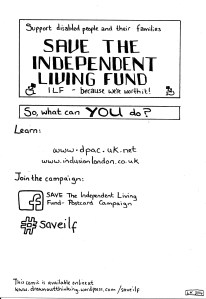 Support disabled people and their families
SAVE THE
INDEPENDENT
LIVING FUND
ILF - because we're worth it!
So, what can YOU do?
Learn:
www.dpac.uk.net
www.inclusionlondon.co.uk
Join the campaign:
SAVE The Independent Living
Fund - Postcard Campaign
#saveilf
This comic is available online at
www.dreamoutthinking.wordpress.com/saveilf